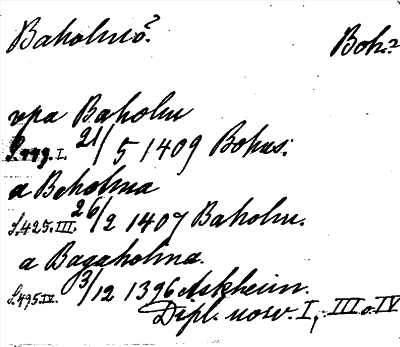 Baholmö? Boh.?
vpa Baholm
S.449.I. 21/5 1409 Bohus:
a Beholma
S.425.III. 26/2 1407 Baholm.
a Bagaholma.
S.495.IV. 3/12 1396 Askheim.
Dipl. norv. I, III o. IV